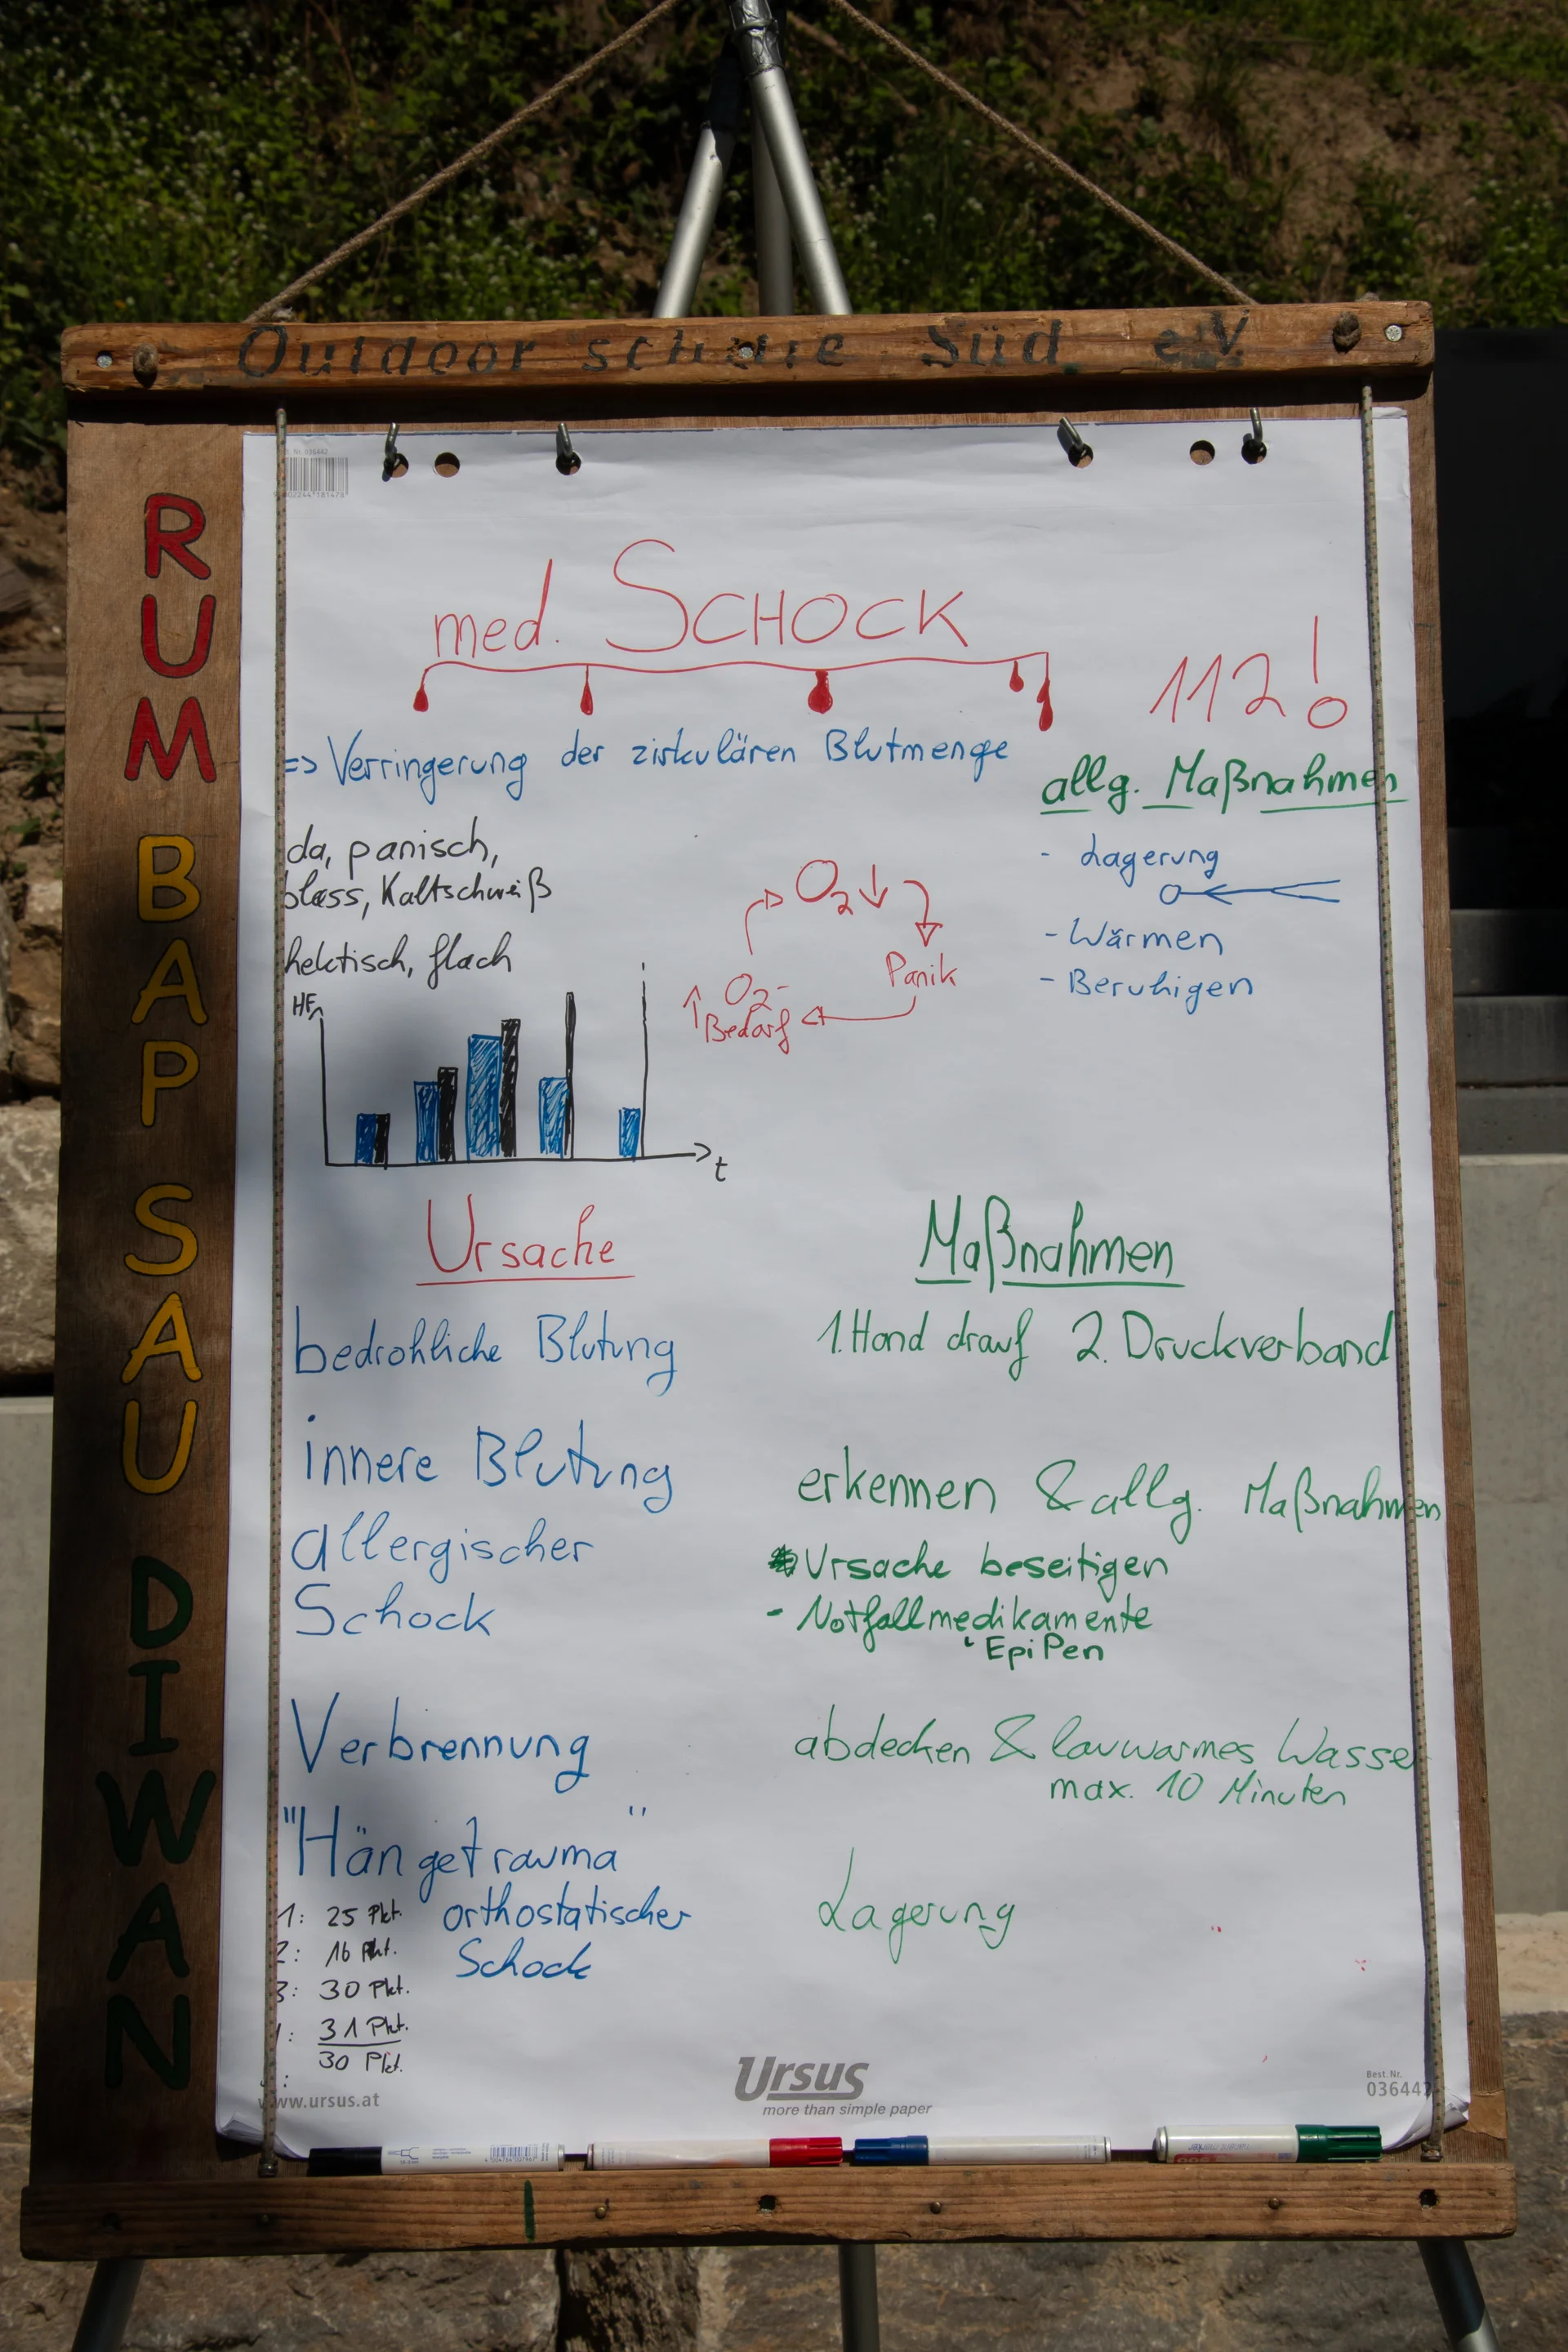 Outdoorschule Süd e.V.
RUM BAP SAU DIWAN
036442
med. SCHOCK
112!
=> Verringerung der zirkulären Blutmenge
allg. Maßnahmen
da, panisch,
blass, Kaltschweiß
hektisch, flach
- Lagerung
- Wärmen
- Beruhigen
O2↓
Panik
↑ O2-
Bedarf
HF
t
Ursache
Maßnahmen
bedrohliche Blutung
1. Hand drauf 2. Druckverband
innere Blutung
erkennen & allg. Maßnahmen
allergischer
Schock
Ursache beseitigen
- Notfallmedikamente
EpiPen
Verbrennung
abdecken & lauwarmes Wasser
max. 10 Minuten
"Hängetrauma"
orthostatischer
Schock
Lagerung
1: 25 Pkt.
2: 16 Pkt.
3: 30 Pkt.
31 Pkt.
30 Pkt.
www.ursus.at
Ursus
more than simple paper
Best. Nr.
036442